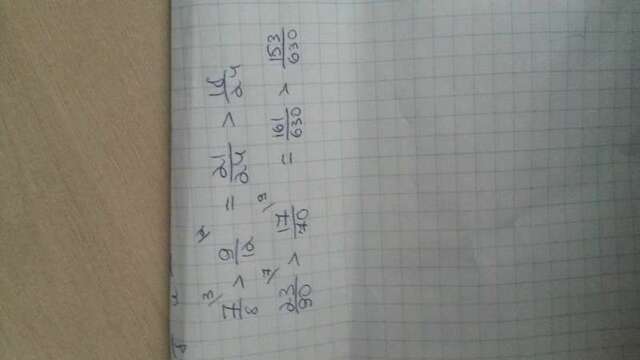 7/8 \3 > 9/12 \2 = 21/24 > 18/24
23/90 \7 > 17/70 \9 = 161/630 > 153/630